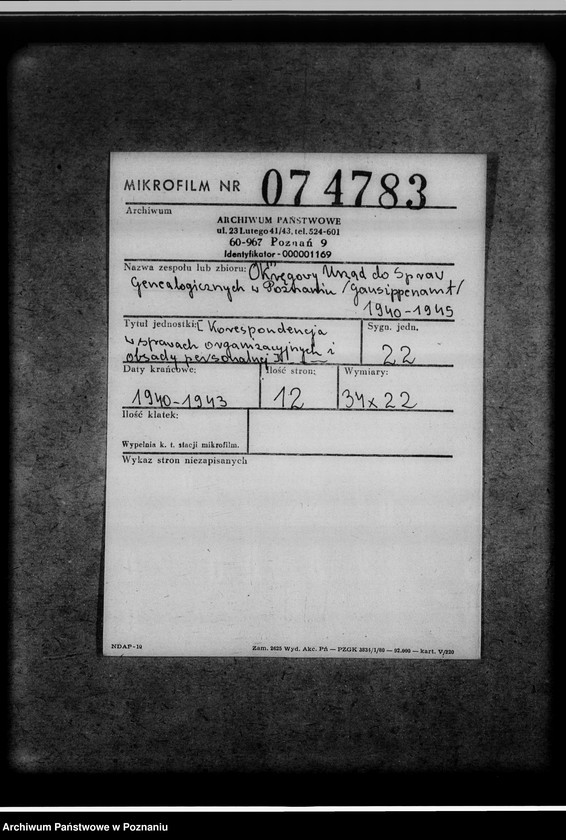 MIKROFILM NR 074783
Archiwum
ARCHIWUM PAŃSTWOWE
ul. 23 Lutego 41/43, tel. 524-601
60-967 Poznań 9
Identyfikator - 000001169
Nazwa zespołu lub zbioru: Okręgowy Urząd do Spraw
Genealogicznych w Poznaniu /Gausippenamt/
1940-1945
Tytuł jednostki: [Korespondencja
w sprawach organizacyjnych i
obsady personalnej]
Sygn. jedn.
22
Daty krańcowe:
1940-1943
Ilość stron:
12
Wymiary:
34x22
Ilość klatek:
Wypełnia k. t. stacji mikrofilm.
Wykaz stron niezapisanych
NDAP-10
Zam. 2625 Wyd. Akc. Pń — PZGK 3834/1/80 — 92.000 — kart. V/220
Archiwum Państwowe w Poznaniu